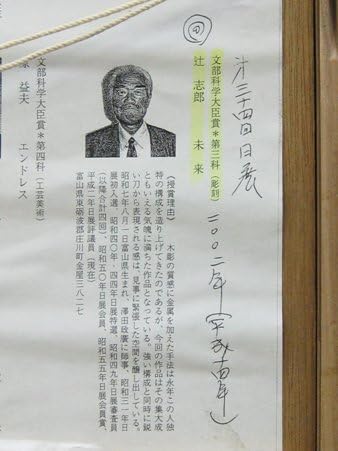 才三十四回日展
二〇〇二年(平成十四年)
回
文部科学大臣賞*第三科(彫刻)
辻 志郎 未来
(授賞理由) 木彫の質感に金属を加えた手法は永年この人独
特の構成を造り上げてきたのであるが、今回の作品はその集大成
ともいえる気魄に満ちた作品となっている。強い構成と同時に鋭
い刀から表現される感は、見事に緊張した空間を醸し出している。
昭和七年八月一日富山県生まれ、澤田政廣に師事、昭和三一年日
展初入選、昭和四〇年・四四年日展特選、昭和四九年日展審査員
(以降合計四回)、昭和五〇年日展会員、昭和五五年日展会員賞、
平成二年日展評議員(現在)
富山県東砺波郡庄川町金屋三八二七
文部科学大臣賞*第四科(工芸美術)
益夫 エンドレス